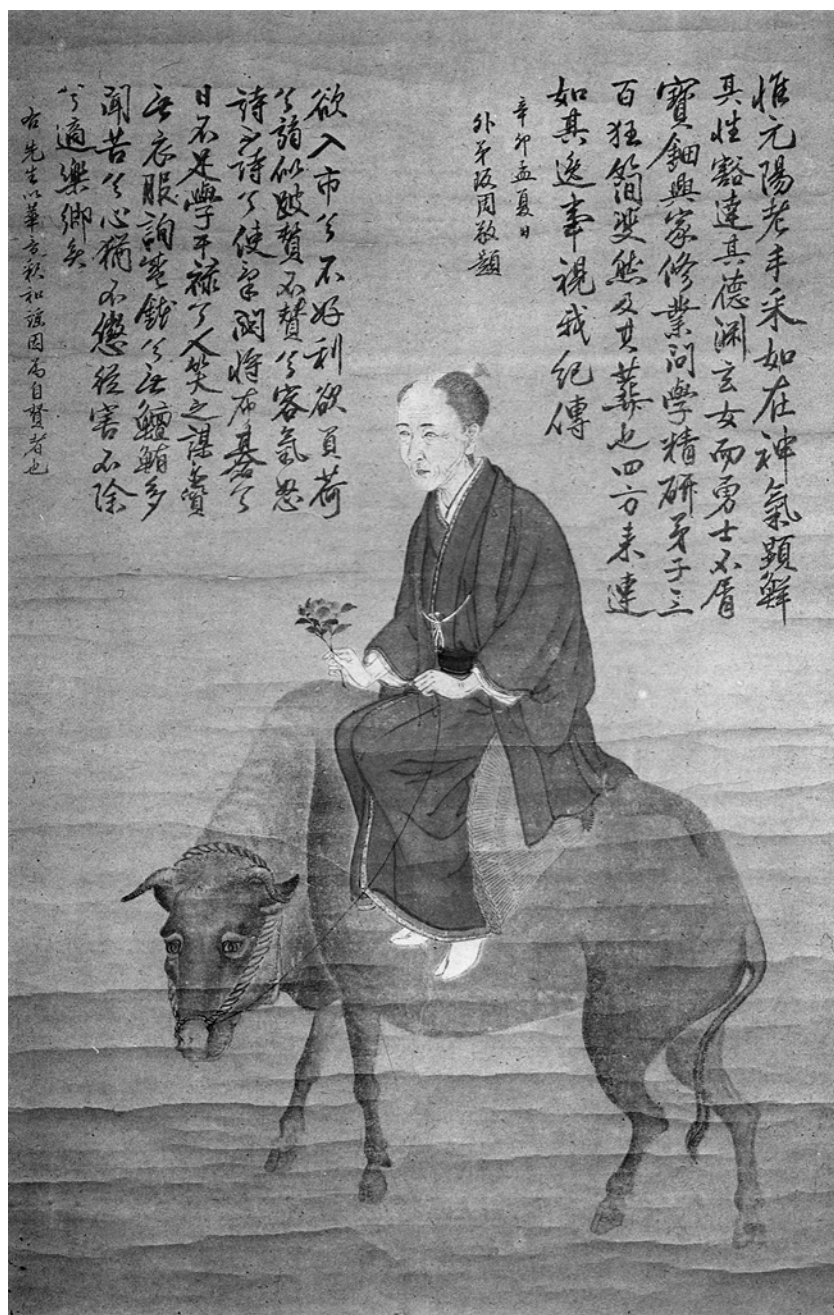 惟元陽老手采如在神氣顕鮮
其性豁達其德淵玄女而勇士不屑
寶鈿興家修業問學精研弟子三
百狂簡斐然及其葬也四方来連
如其逸事視我紀傳
辛卯孟夏日
外弟阪周敬題
欲入市兮不好利欲負荷
兮似跛贊不贊兮容氣怒
詩不詩兮使將布碁兮
日不足學干祿兮人笑之謀
無衣服詢無錢兮無鱣鮪多
聞苦兮心猶不懲從害不除
兮適樂鄉矣
右先生以華言和謡因為自賛者也